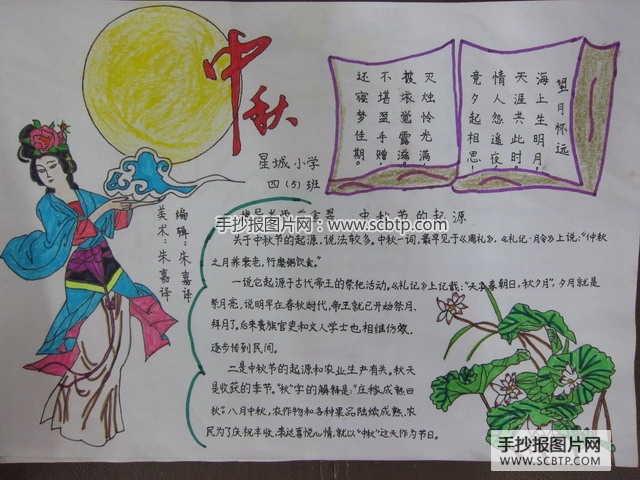 中秋
星城小学
四（5）班
编辑：朱嘉译
美术：朱嘉译
望月怀远
海上生明月，
天涯共此时
情人怨遥夜，
竟夕起相思！
灭烛怜光满
披衣觉露滋。
不堪盈手赠
还寝梦佳期。
手抄报图片网：www.scbtp.com
中秋节的起源
关于中秋节的起源，说法较多。中秋一词，最早见于《周礼》，《礼记·月令》上说：“仲秋
之月养衰老，行糜粥饮食。”
一说它起源于古代帝王的祭祀活动。《礼记》上记载：“天子春朝日，秋夕月”，夕月就是
祭月亮，说明早在春秋时代，帝王就已开始祭月、
拜月了。后来贵族官吏和文人学士也相继仿效，
逐步传到民间。
二是中秋节的起源和农业生产有关。秋天
是收获的季节。“秋”字的解释是：“庄稼成熟曰
秋”。八月中秋，农作物和各种果品陆续成熟，农
民为了庆祝丰收，表达喜悦心情，就以“中秋”这天作为节日。
手抄报图片网
WWW.SCBTP.COM